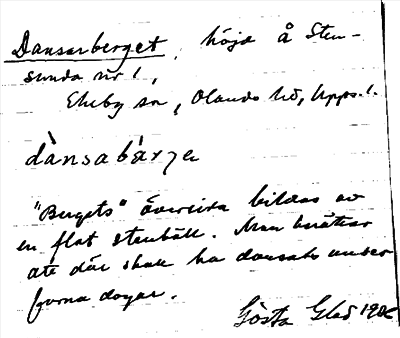 Dansarberget, höjd å Sten-
sunda nr 1,
Ekeby sn, Olands hd, Upps. l.
dànsabárjα
"Bergets" översida bildas av
en flat stenhäll. Man berättar
att där skall ha dansats under
forna dagar.
Gösta Glad 1906